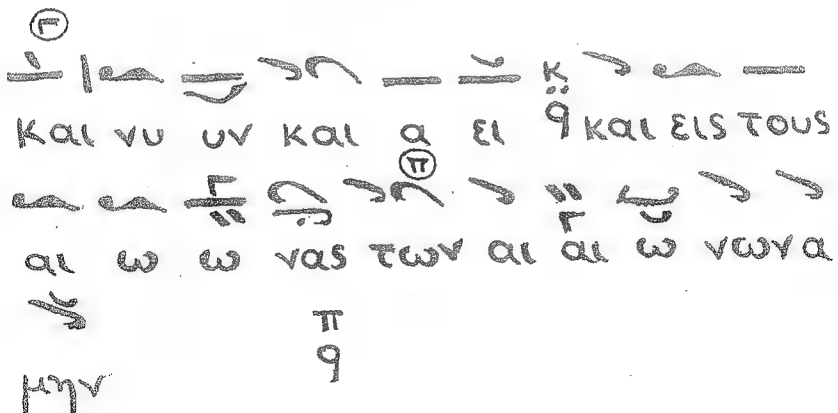 Γ
και νυ υν και α ει κ̈ ϙ και εις τους
π
αι ω ω νας των αι αι ω νων α
μην π ϙ